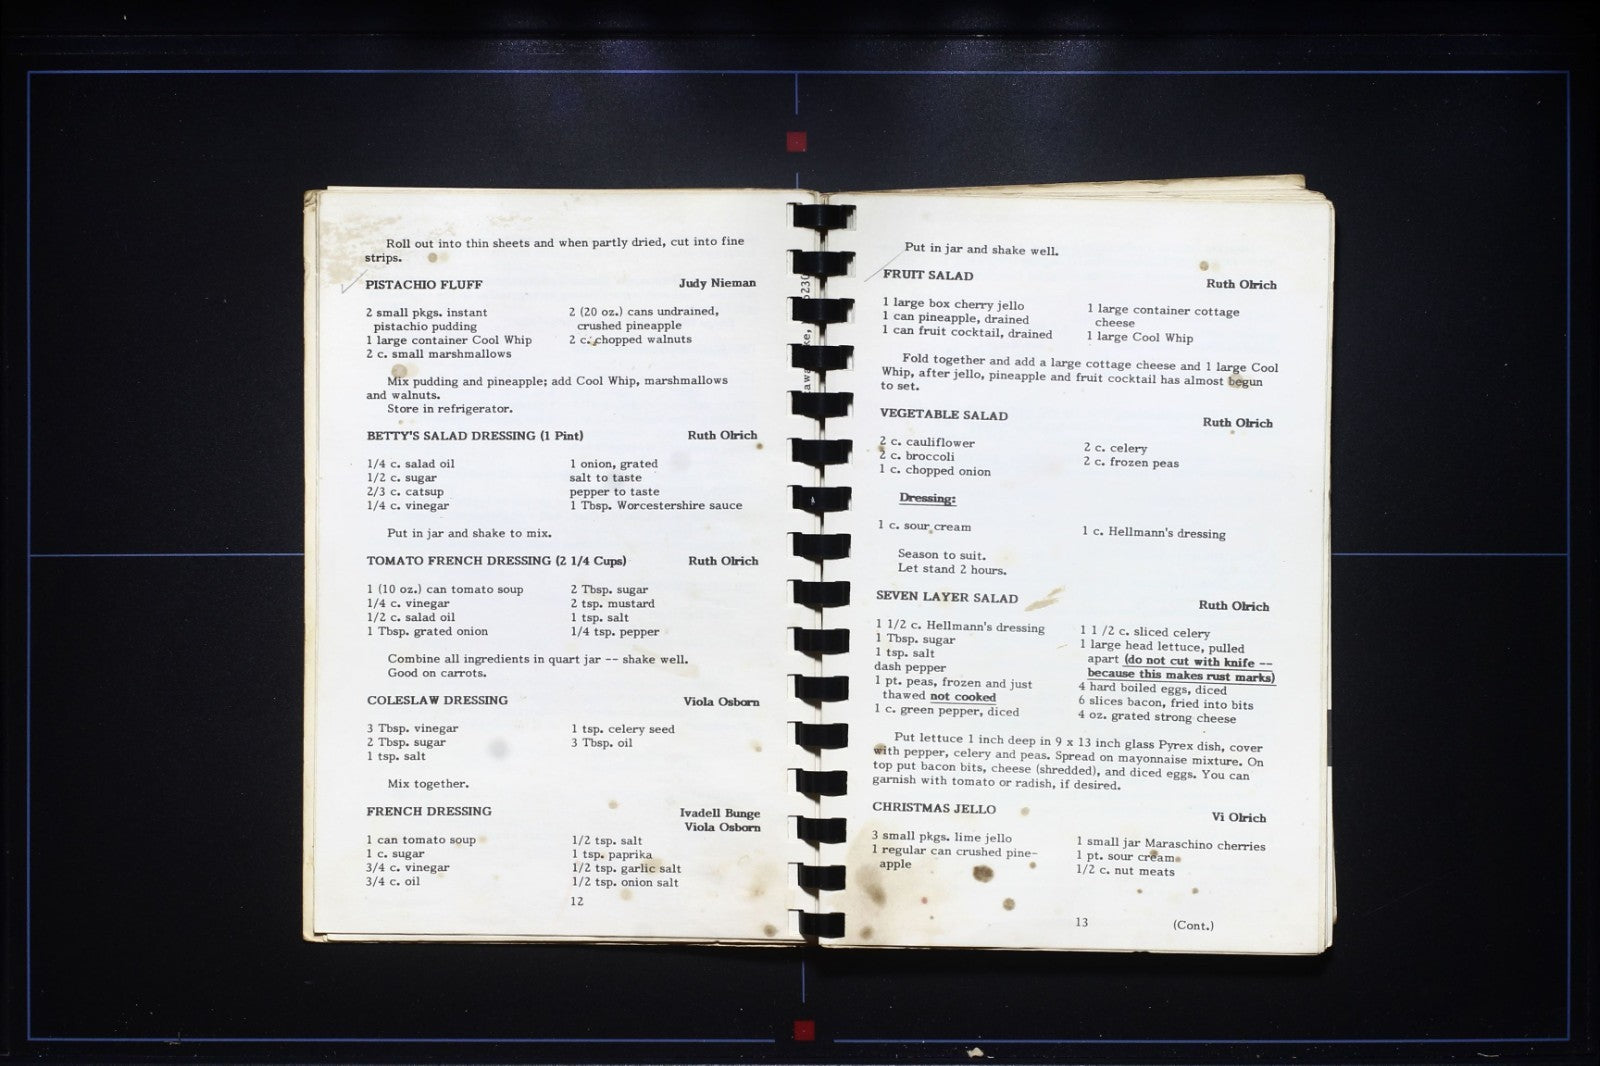 Roll out into thin sheets and when partly dried, cut into fine
strips.
PISTACHIO FLUFF Judy Nieman
2 small pkgs. instant
pistachio pudding
1 large container Cool Whip
2 c. small marshmallows
2 (20 oz.) cans undrained,
crushed pineapple
2 c. chopped walnuts
Mix pudding and pineapple; add Cool Whip, marshmallows
and walnuts.
Store in refrigerator.
BETTY'S SALAD DRESSING (1 Pint) Ruth Olrich
1/4 c. salad oil
1/2 c. sugar
2/3 c. catsup
1/4 c. vinegar
1 onion, grated
salt to taste
pepper to taste
1 Tbsp. Worcestershire sauce
Put in jar and shake to mix.
TOMATO FRENCH DRESSING (2 1/4 Cups) Ruth Olrich
1 (10 oz.) can tomato soup
1/4 c. vinegar
1/2 c. salad oil
1 Tbsp. grated onion
2 Tbsp. sugar
2 tsp. mustard
1 tsp. salt
1/4 tsp. pepper
Combine all ingredients in quart jar -- shake well.
Good on carrots.
COLESLAW DRESSING Viola Osborn
3 Tbsp. vinegar
2 Tbsp. sugar
1 tsp. salt
1 tsp. celery seed
3 Tbsp. oil
Mix together.
FRENCH DRESSING Ivadell Bunge
Viola Osborn
1 can tomato soup
1 c. sugar
3/4 c. vinegar
3/4 c. oil
1/2 tsp. salt
1 tsp. paprika
1/2 tsp. garlic salt
1/2 tsp. onion salt
12
Put in jar and shake well.
FRUIT SALAD Ruth Olrich
1 large box cherry jello
1 can pineapple, drained
1 can fruit cocktail, drained
1 large container cottage
cheese
1 large Cool Whip
Fold together and add a large cottage cheese and 1 large Cool
Whip, after jello, pineapple and fruit cocktail has almost begun
to set.
VEGETABLE SALAD Ruth Olrich
2 c. cauliflower
2 c. broccoli
1 c. chopped onion
2 c. celery
2 c. frozen peas
Dressing:
1 c. sour cream
1 c. Hellmann's dressing
Season to suit.
Let stand 2 hours.
SEVEN LAYER SALAD Ruth Olrich
1 1/2 c. Hellmann's dressing
1 Tbsp. sugar
1 tsp. salt
dash pepper
1 pt. peas, frozen and just
thawed not cooked
1 c. green pepper, diced
1 1 /2 c. sliced celery
1 large head lettuce, pulled
apart (do not cut with knife --
because this makes rust marks)
4 hard boiled eggs, diced
6 slices bacon, fried into bits
4 oz. grated strong cheese
Put lettuce 1 inch deep in 9 x 13 inch glass Pyrex dish, cover
with pepper, celery and peas. Spread on mayonnaise mixture. On
top put bacon bits, cheese (shredded), and diced eggs. You can
garnish with tomato or radish, if desired.
CHRISTMAS JELLO Vi Olrich
3 small pkgs. lime jello
1 regular can crushed pine-
apple
1 small jar Maraschino cherries
1 pt. sour cream
1/2 c. nut meats
13 (Cont.)